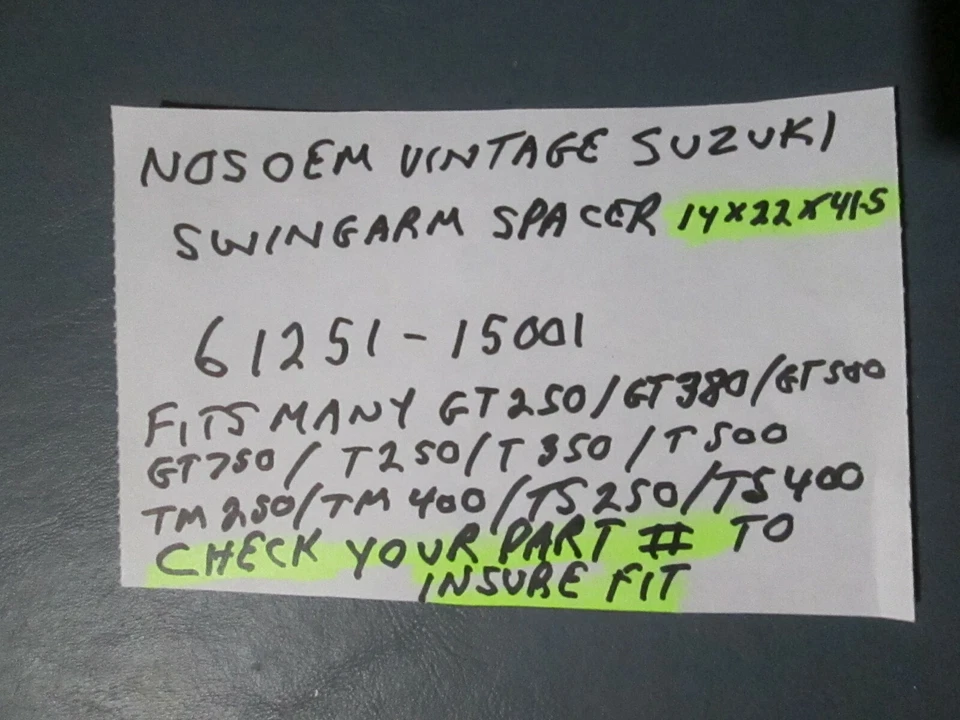 NOS OEM VINTAGE SUZUKI
SWINGARM SPACER 14X22X41.5
61251-15001
FITS MANY GT250/GT380/GT500
GT750/T250/T350/T500
TM250/TM400/TS250/TS400
CHECK YOUR PART # TO
INSURE FIT